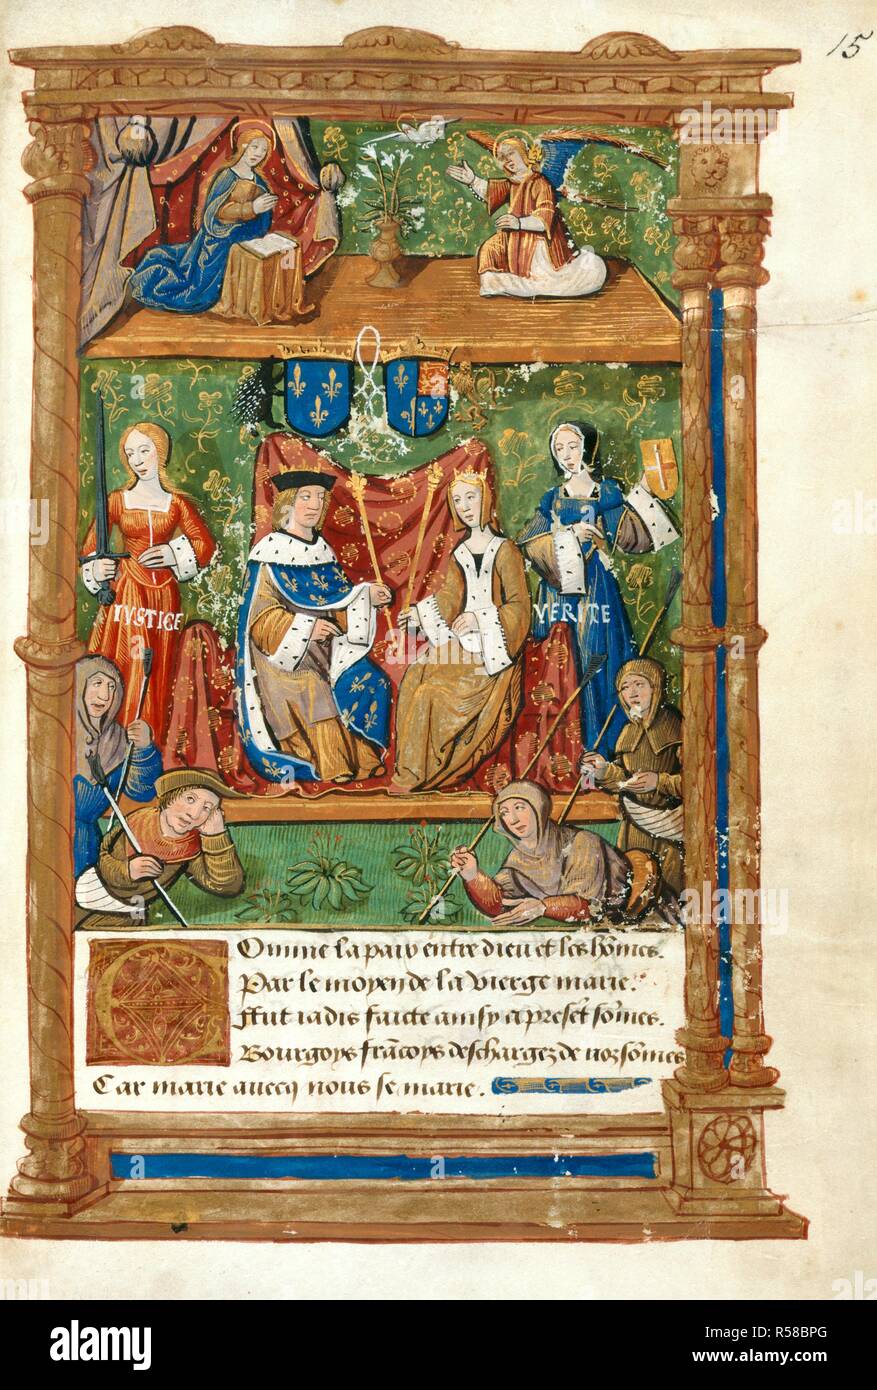 15
IVSTICE
VERITE
Comme la paix entre dieu et les hōmes.
Par le moyen de la vierge marie.
Fut iadis faicte ainsy a presēt sōmes.
Bourgoys frācoys deschargez de noz sōmes
Car marie avecq nous se marie.
alamy
Image ID: R58BPG
www.alamy.com